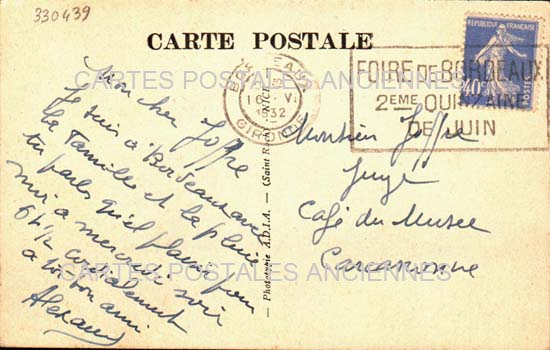 330439
CARTE POSTALE
CARTES POSTALES ANCIENNES
REPUBLIQUE FRANÇAISE
40c
BORDEAUX
1932
GIRONDE
FOIRE DE BORDEAUX
2EME QUINZAINE
DE JUIN
Mon cher Joffre
Je suis à Bordeaux avec
la famille et la pluie
tu parles qu'el plaisir pour
moi a mercredi soir
6h 1/2 cordialement
a toi ton ami
Monsieur Joffre
Juge
Café du Musée
Carcassonne
Photographie A.D.I.A. (Saint Roch) NICE
CARTES POSTALES ANCIENNES